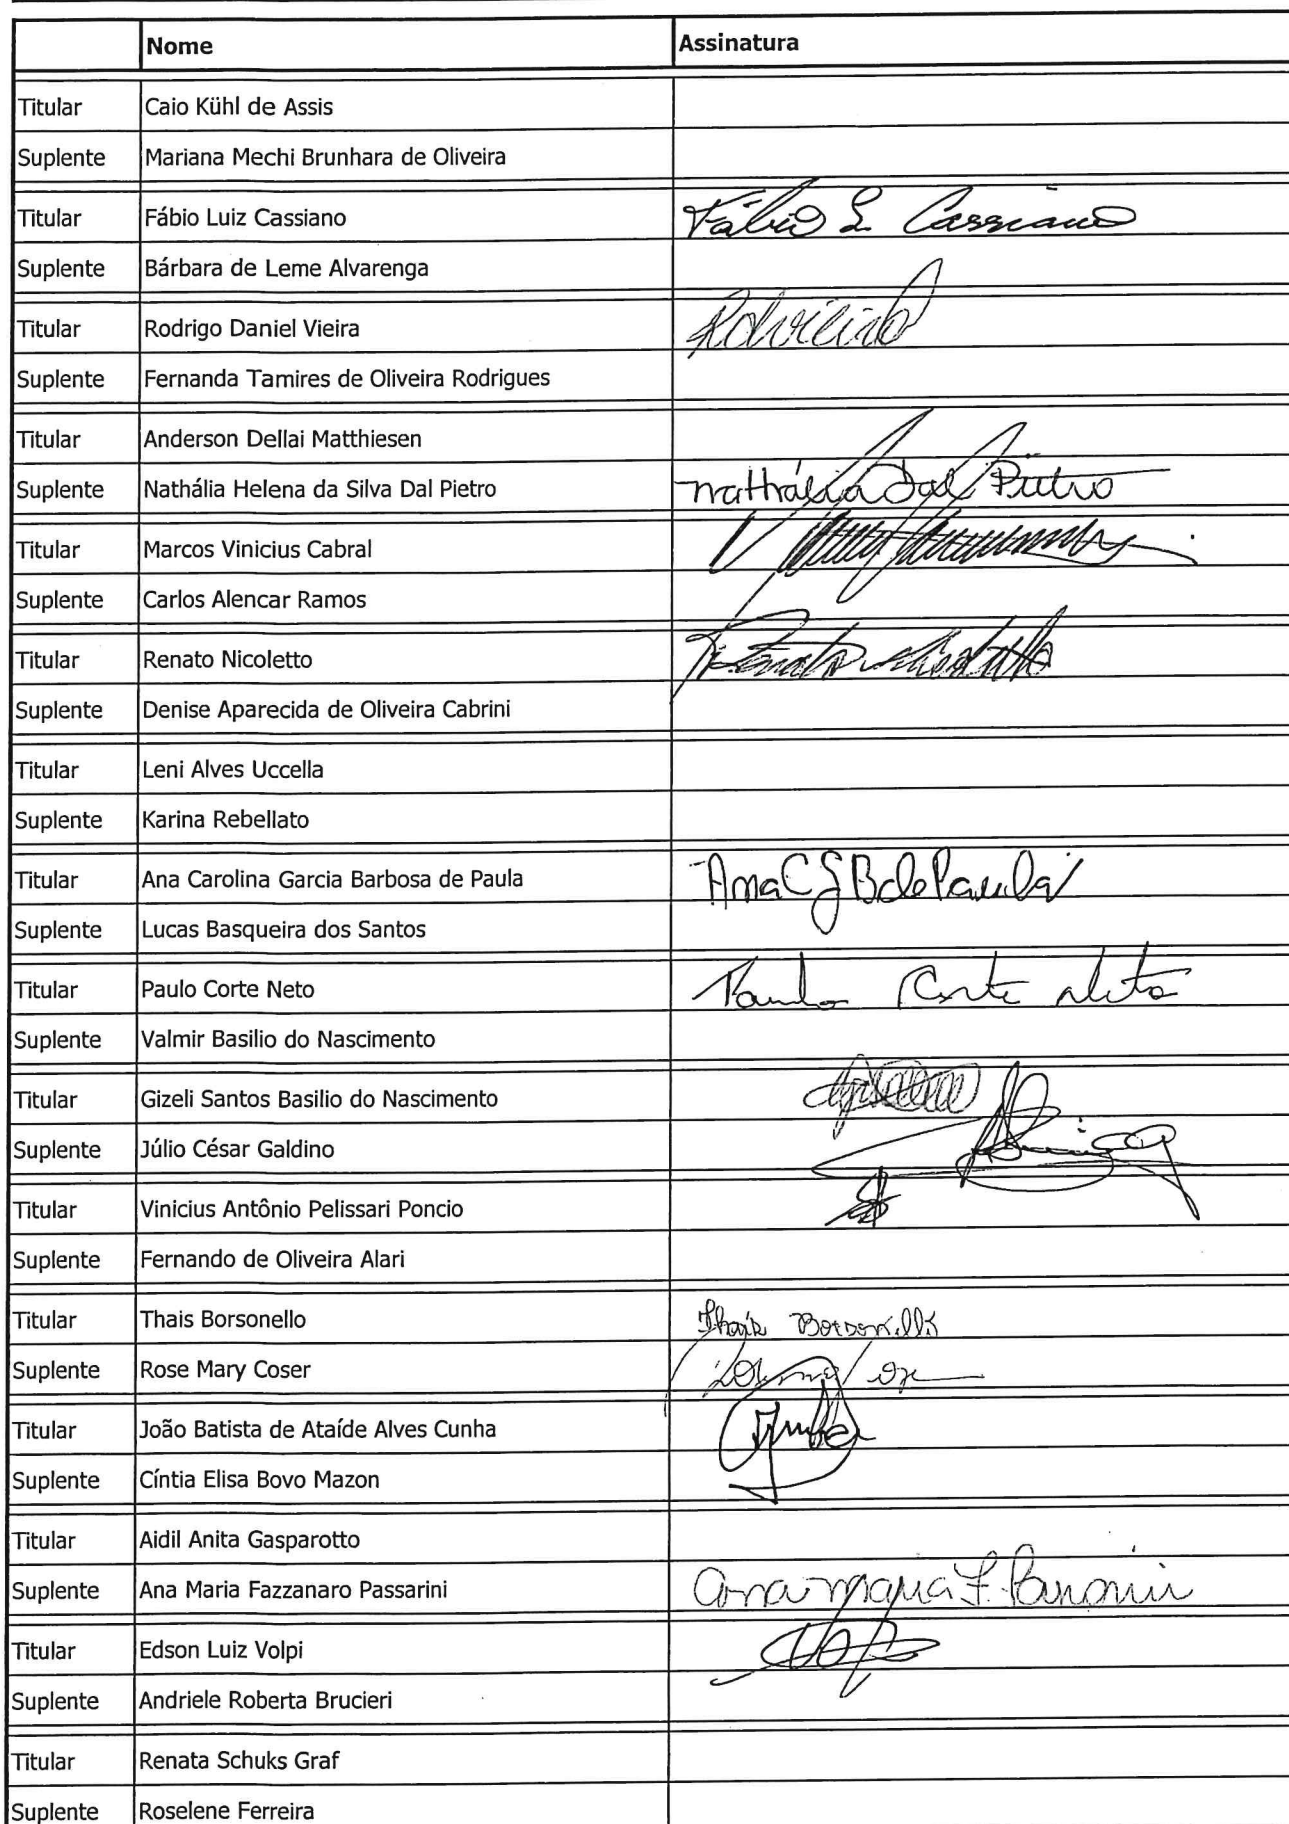 Nome Assinatura
Titular Caio Kühl de Assis
Suplente Mariana Mechi Brunhara de Oliveira
Titular Fábio Luiz Cassiano Fábio L. Cassiano
Suplente Bárbara de Leme Alvarenga
Titular Rodrigo Daniel Vieira
Suplente Fernanda Tamires de Oliveira Rodrigues
Titular Anderson Dellai Matthiesen
Suplente Nathália Helena da Silva Dal Pietro Nathália Dal Pietro
Titular Marcos Vinicius Cabral
Suplente Carlos Alencar Ramos
Titular Renato Nicoletto Renato Nicoletto
Suplente Denise Aparecida de Oliveira Cabrini
Titular Leni Alves Uccella
Suplente Karina Rebellato
Titular Ana Carolina Garcia Barbosa de Paula Ana C G B de Paula
Suplente Lucas Basqueira dos Santos
Titular Paulo Corte Neto Paulo Corte Neto
Suplente Valmir Basilio do Nascimento
Titular Gizeli Santos Basilio do Nascimento
Suplente Júlio César Galdino
Titular Vinicius Antônio Pelissari Poncio
Suplente Fernando de Oliveira Alari
Titular Thais Borsonello Thais Borsonello
Suplente Rose Mary Coser
Titular João Batista de Ataíde Alves Cunha
Suplente Cíntia Elisa Bovo Mazon
Titular Aidil Anita Gasparotto
Suplente Ana Maria Fazzanaro Passarini Ana Maria F. Passarini
Titular Edson Luiz Volpi
Suplente Andriele Roberta Brucieri
Titular Renata Schuks Graf
Suplente Roselene Ferreira